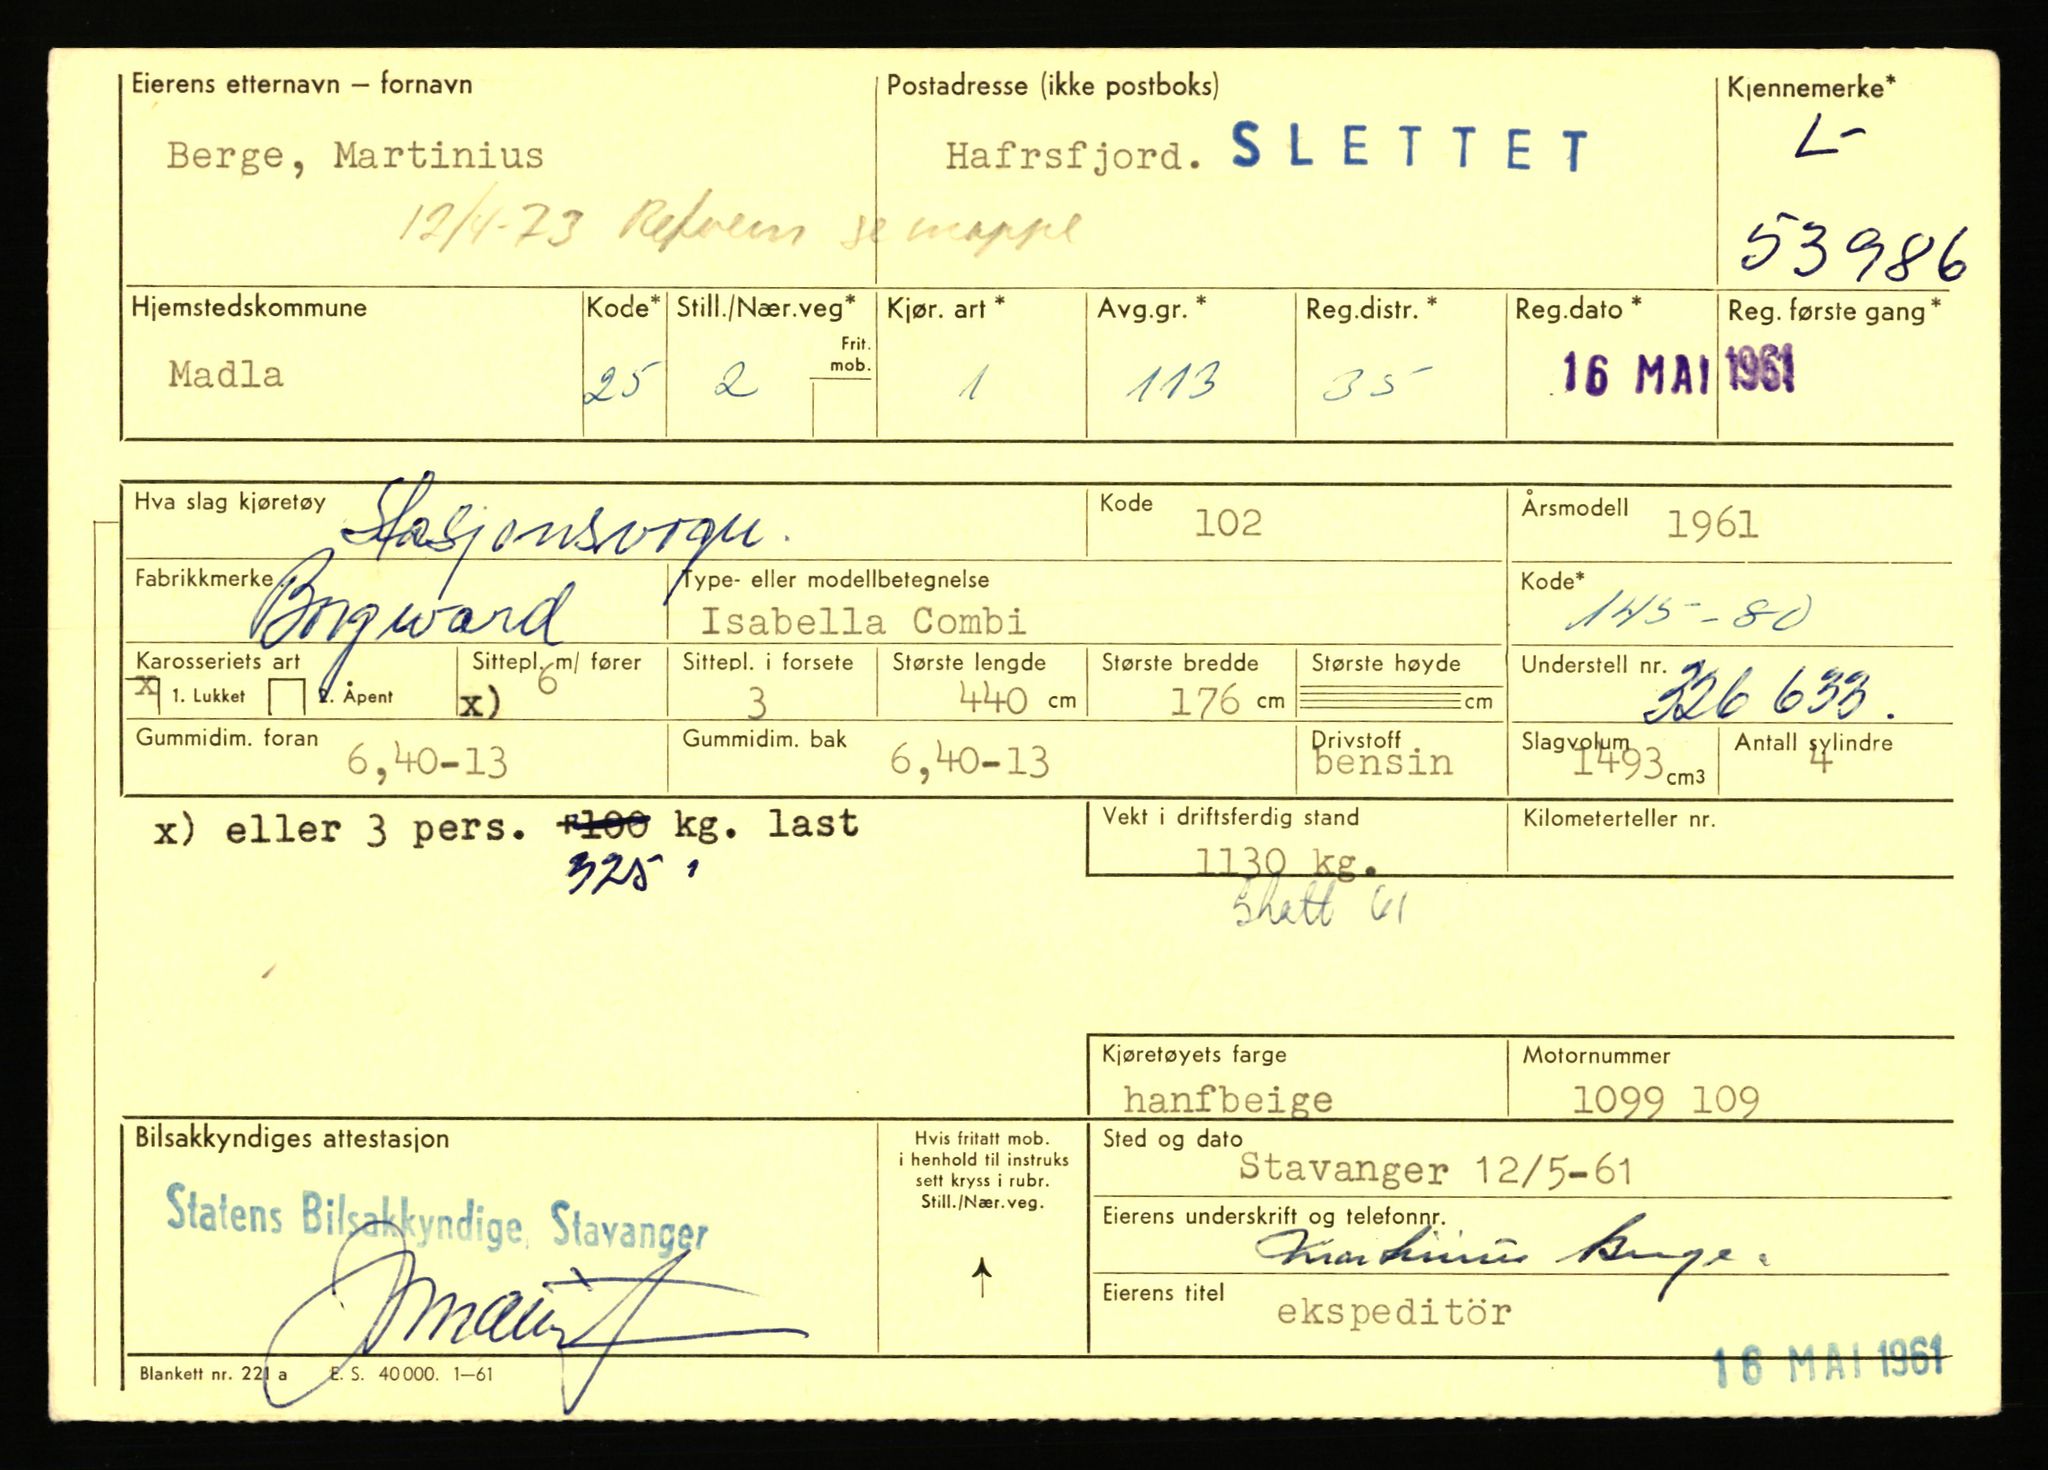 Eierens etternavn – fornavn
Postadresse (ikke postboks)
Kjennemerke*
Berge, Martinius
Hafrsfjord. SLETTET
L-
12/4-73 se mappe
53986
Hjemstedskommune
Kode*
Still./Nær.veg*
Frit. mob.
Kjør. art *
Avg.gr. *
Reg.distr. *
Reg.dato *
Reg. første gang*
Madla
25
2
1
113
35
16 MAI 1961
Hva slag kjøretøy
Stasjonsvogn.
Kode
102
Årsmodell
1961
Fabrikkmerke
Borgward
Type- eller modellbetegnelse
Isabella Combi
Kode*
145-80
Karosseriets art
x 1. Lukket 2. Åpent
Sittepl. m/ fører
x) 6
Sittepl. i forsete
3
Største lengde
440 cm
Største bredde
176 cm
Største høyde
cm
Understell nr.
326 633.
Gummidim. foran
6,40-13
Gummidim. bak
6,40-13
Drivstoff
bensin
Slagvolum
1493 cm3
Antall sylindre
4
x) eller 3 pers. 100 kg. last
325
Vekt i driftsferdig stand
1130 kg.
Kilometerteller nr.
Skatt 61
Kjøretøyets farge
hanfbeige
Motornummer
1099 109
Bilsakkyndiges attestasjon
Statens Bilsakkyndige, Stavanger
Hvis fritatt mob.
i henhold til instruks
sett kryss i rubr.
Still./Nær.veg.
Sted og dato
Stavanger 12/5-61
Eierens underskrift og telefonnr.
Martinius Berge.
Eierens titel
ekspeditör
16 MAI 1961
Blankett nr. 221 a E. S. 40 000. 1–61